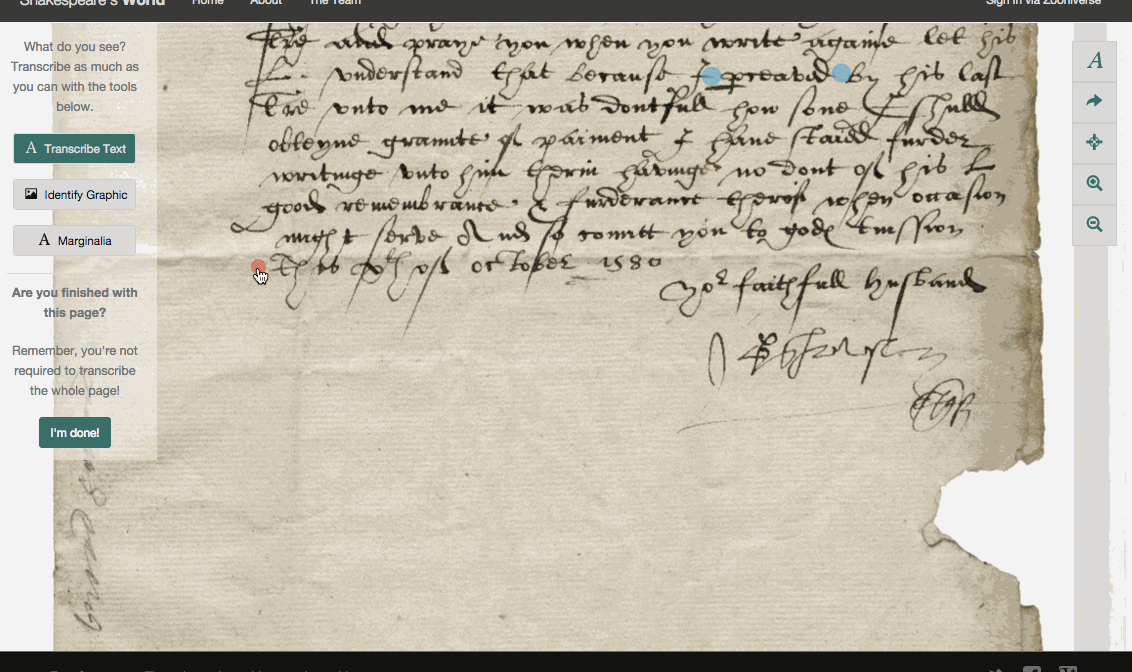 Shakespeare's World
Home
About
The Team
Sign in via Zooniverse
What do you see?
Transcribe as much as
you can with the tools
below.
A Transcribe Text
Identify Graphic
A Marginalia
Are you finished with
this page?
Remember, you're not
required to transcribe
the whole page!
I'm done!
A
lre and praye you when you write againe let his
L. vnderstand that because I pceaved by his last
lre vnto me it was doutfull how sone I shuld
obteyne graunte of paiment I have staied furder
writinge vnto him therin havinge no dout of his L
good remembrance & furderance therof when occasion
might serve And so comitt you to god
This of october 1580
yor faithfull husband